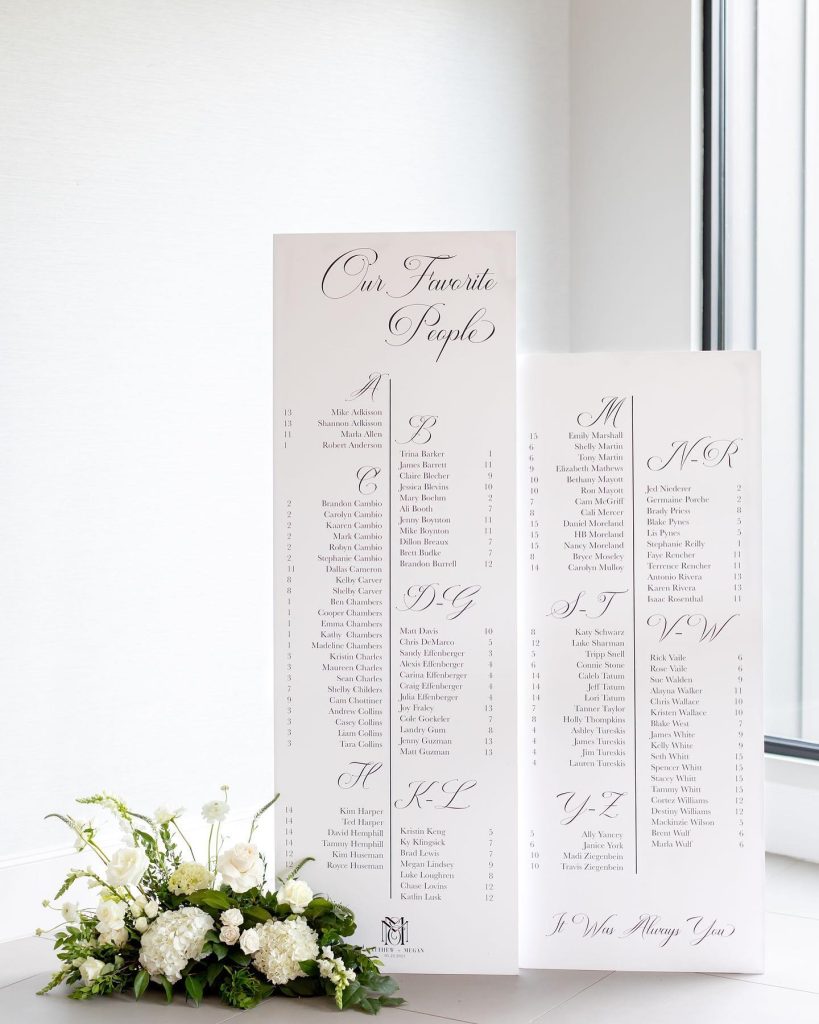 Our Favorite
People
A
13 Mike Adkisson
13 Shannon Adkisson
11 Marla Allen
1 Robert Anderson
C
2 Brandon Cambio
2 Carolyn Cambio
2 Kaaren Cambio
2 Mark Cambio
2 Robyn Cambio
2 Stephanie Cambio
11 Dallas Cameron
8 Kelby Carver
8 Shelby Carver
1 Ben Chambers
1 Cooper Chambers
1 Emma Chambers
1 Kathy Chambers
1 Madeline Chambers
3 Kristin Charles
3 Maureen Charles
3 Sean Charles
7 Shelby Childers
9 Cam Chottiner
3 Andrew Collins
3 Casey Collins
3 Liam Collins
3 Tara Collins
H
14 Kim Harper
14 Ted Harper
14 David Hemphill
14 Tammy Hemphill
12 Kim Huseman
12 Royce Huseman
B
Trina Barker 1
James Barrett 11
Claire Blecher 9
Jessica Blevins 10
Mary Boehm 2
Ali Booth 7
Jenny Boynton 11
Mike Boynton 11
Dillon Breaux 7
Brett Budke 7
Brandon Burrell 12
D-G
Matt Davis 10
Chris DeMarco 5
Sandy Effenberger 3
Alexis Effenberger 4
Carina Effenberger 4
Craig Effenberger 4
Julia Effenberger 4
Joy Fraley 13
Cole Goekeler 7
Landry Gum 8
Jenny Guzman 13
Matt Guzman 13
K-L
Kristin Keng 5
Ky Klingsick 7
Brad Lewis 7
Megan Lindsey 9
Luke Loughren 8
Chase Lovins 12
Katlin Lusk 12
MATTHEW + MEGAN
M
15 Emily Marshall
6 Shelly Martin
6 Tony Martin
9 Elizabeth Mathews
10 Bethany Mayott
10 Ron Mayott
7 Cam McGriff
8 Cali Mercer
15 Daniel Moreland
15 HB Moreland
15 Nancy Moreland
8 Bryce Moseley
14 Carolyn Mulloy
S-T
8 Katy Schwarz
12 Luke Sharman
5 Tripp Snell
6 Connie Stone
14 Caleb Tatum
14 Jeff Tatum
14 Lori Tatum
7 Tanner Taylor
8 Holly Thompkins
4 Ashley Tureskis
4 James Tureskis
4 Jim Tureskis
4 Lauren Tureskis
Y-Z
5 Ally Yancey
6 Janice York
10 Madi Ziegenbein
10 Travis Ziegenbein
N-R
Jed Niederer 2
Germaine Porche 2
Brady Priess 8
Blake Pynes 5
Lis Pynes 5
Stephanie Reilly 1
Faye Rencher 11
Terrence Rencher 11
Antonio Rivera 13
Karen Rivera 13
Isaac Rosenthal 11
V-W
Rick Vaile 6
Rose Vaile 6
Sue Walden 9
Alayna Walker 11
Chris Wallace 10
Kristen Wallace 10
Blake West 7
James White 9
Kelly White 9
Seth Whitt 15
Spencer Whitt 12
Stacey Whitt 15
Tammy Whitt 15
Cortez Williams 12
Destiny Williams 12
Mackinzie Wilson 5
Brent Wulf 6
Marla Wulf 6
It Was Always You